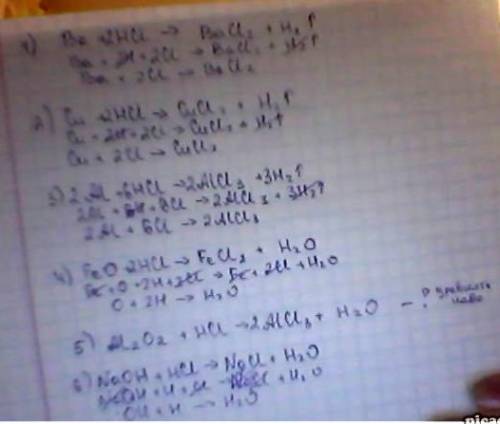 1) Ba + 2HCl → BaCl2 + H2↑
Ba + 2H + 2Cl → BaCl2 + H2↑
Ba + 2Cl → BaCl2
2) Cu + 2HCl → CuCl2 + H2↑
Cu + 2H + 2Cl → CuCl2 + H2↑
Cu + 2Cl → CuCl2
3) 2Al + 6HCl → 2AlCl3 + 3H2↑
2Al + 6H + 6Cl → 2AlCl3 + 3H2↑
2Al + 6Cl → 2AlCl3
4) FeO + 2HCl → FeCl2 + H2O
Fe + O + 2H + 2Cl → Fe + 2Cl + H2O
O + 2H → H2O
5) Al2O2 + HCl → 2AlCl3 + H2O - ?
6) NaOH + HCl → NaCl + H2O
NaOH + H + Cl → NaCl + H2O
OH + H → H2O